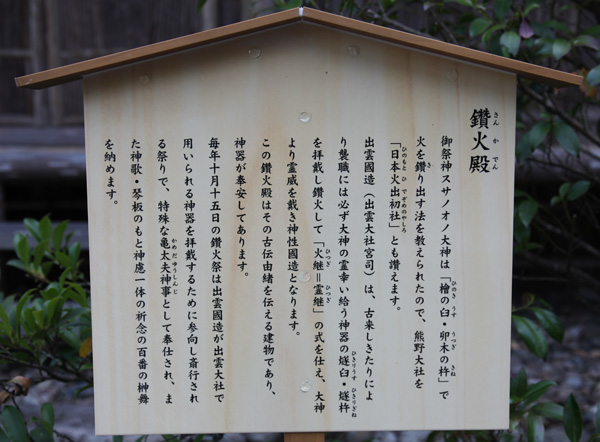 鑽火殿
さんかでん
御祭神スサノオノ大神は「檜の臼・卯木の杵」で
ひのき うす うつぎ きね
火を鑽り出す法を教えられたので、熊野大社を
き
「日本火出初社」とも讃えます。
ひのもとひでぞめのやしろ
出雲國造（出雲大社宮司）は、古来しきたりによ
り襲職には必ず大神の霊幸い給う神器の燧臼・燧杵
ひきりうす ひきりぎね
を拝戴し鑽火して「火継＝霊継」の式を仕え、大神
ひつぎ ひつぎ
より霊威を戴き神性國造となります。
この鑽火殿はその古伝由緒を伝える建物であり、
神器が奉安してあります。
毎年十月十五日の鑽火祭は出雲國造が出雲大社で
用いられる神器を拝戴するために参向し斎行され
る祭りで、特殊な亀太夫神事として奉仕され、ま
かめだゆうしんじ
た神歌・琴板のもと神慮一体の祈念の百番の榊舞
を納めます。